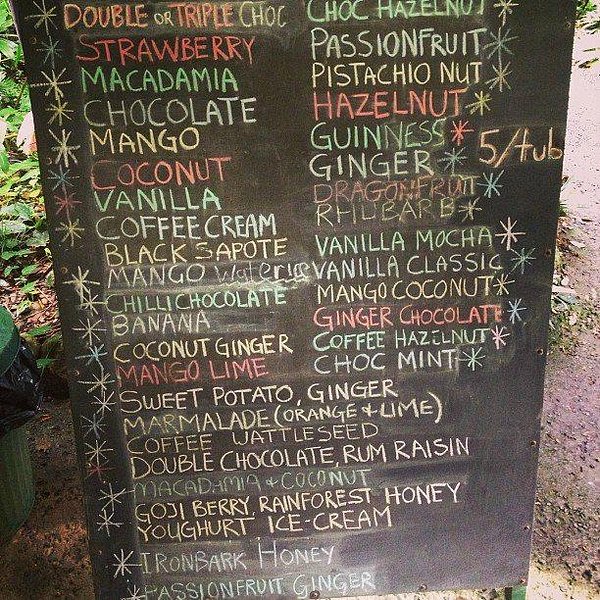 DOUBLE OR TRIPLE CHOC
STRAWBERRY
MACADAMIA
CHOCOLATE
MANGO
COCONUT
VANILLA
COFFEE CREAM
BLACK SAPOTE
MANGO
CHILLI CHOCOLATE
BANANA
COCONUT GINGER
MANGO LIME
CHOC HAZELNUT
PASSIONFRUIT
PISTACHIO NUT
HAZELNUT
GUINNESS
GINGER
5/tub
DRAGONFRUIT
RHUBARB
VANILLA MOCHA
VANILLA CLASSIC
MANGO COCONUT
GINGER CHOCOLATE
COFFEE HAZELNUT
CHOC MINT
SWEET POTATO, GINGER
MARMALADE (ORANGE + LIME)
COFFEE WATTLESEED
DOUBLE CHOCOLATE, RUM RAISIN
MACADAMIA + COCONUT
GOJI BERRY, RAINFOREST HONEY
YOUGHURT ICE-CREAM
IRONBARK HONEY
PASSIONFRUIT GINGER